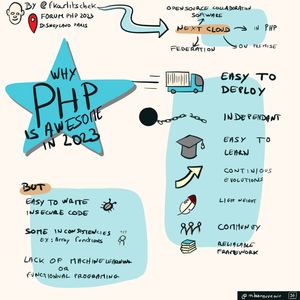 BY @fkarlitschek
FORUM PHP 2023
DISNEYLAND PARIS
OPENSOURCE COLLABORATION
SOFTWARE
NEXT CLOUD
IN PHP
FEDERATION
ON PREMISE
WHY
PHP
IS AWESOME
IN 2023
EASY TO
DEPLOY
INDEPENDANT
EASY TO
LEARN
CONTINIOUS
EVOLUTIONS
LIGHT WEIGHT
COMMUNITY
RELIABLE
FRAMEWORK
BUT
EASY TO WRITE
INSECURE CODE
SOME INCONSISTENCIES
EX: Array functions
LACK OF MACHINE LEARNING
OR
FUNCTIONNAL PROGRAMING